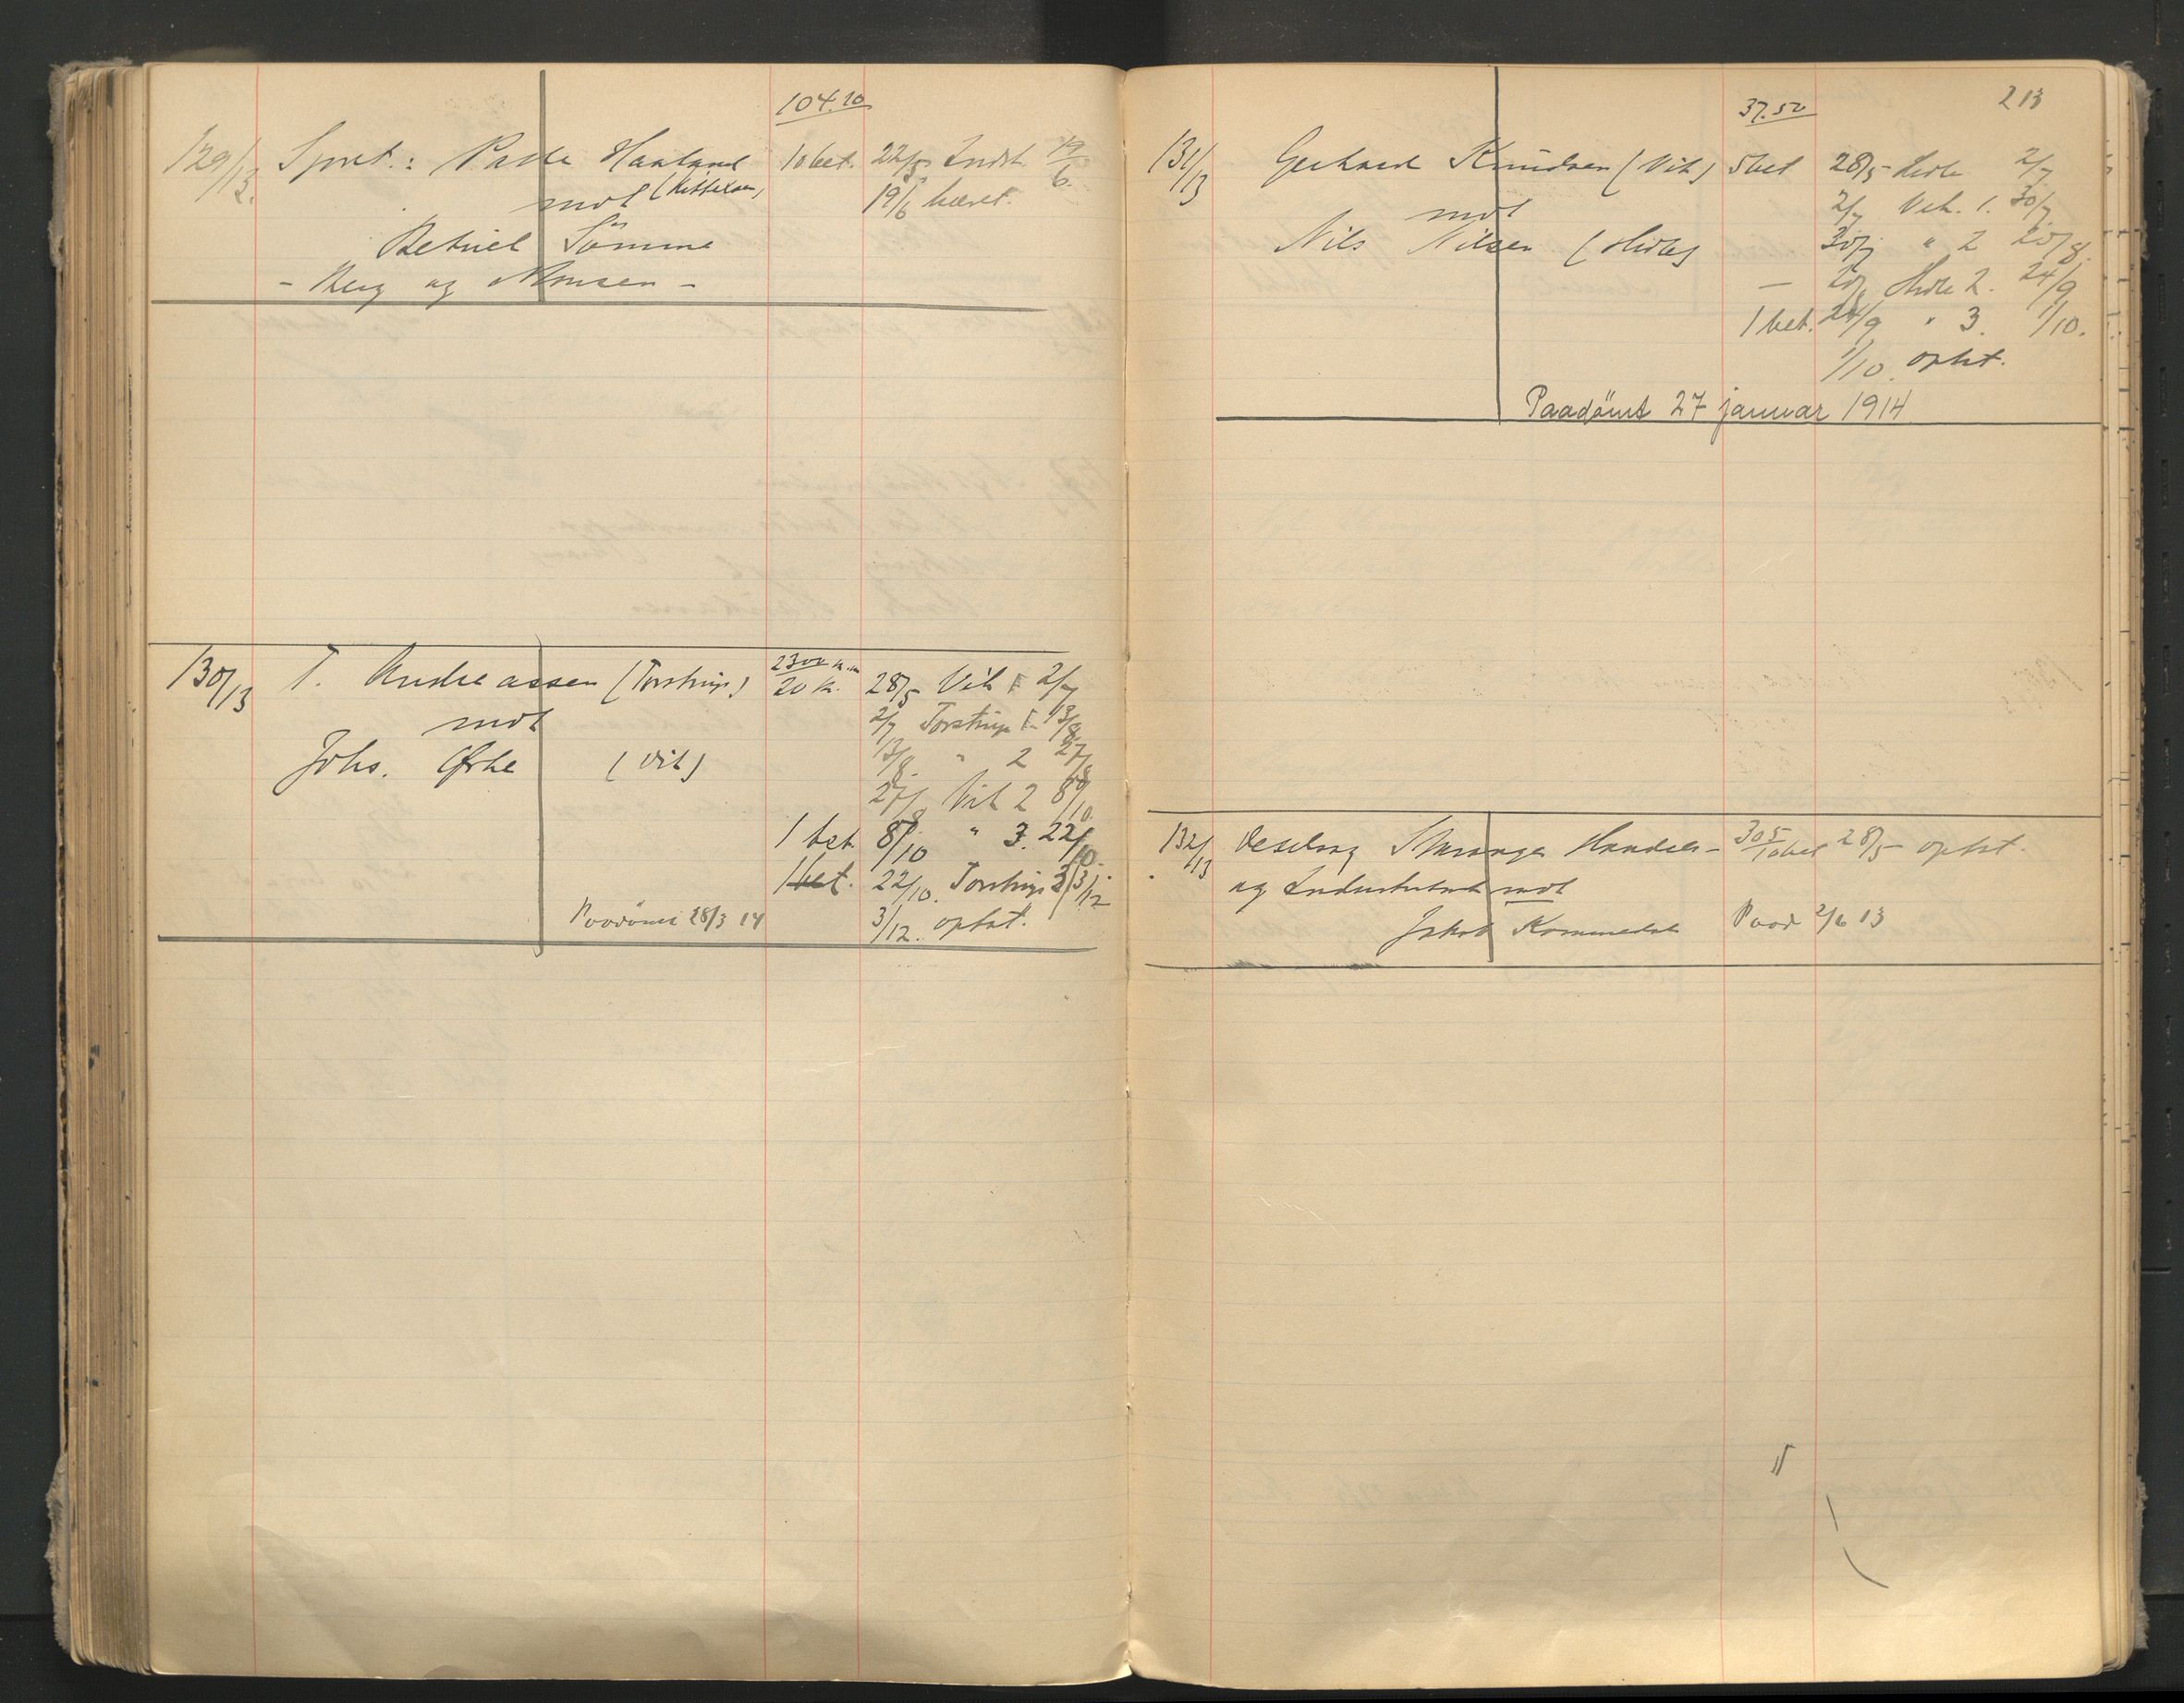 104.10
129/13. Spret.: Haaland 10 bet. 22/5 Indst 19/6.
mot 19/6 hævet.
Betuel Sömme
- Berg og Monsen -
130/13 T. Andreassen (Torstrup) 2300 20 K. 28/5 Vih 2/7
mot 2/7 Torstrup 13/8.
Johs. (Vih) 13/8. " 2 27/8
27/8 Vih 2 8/10.
1 bet. 8/10 " 3. 22/10.
1 bet. 22/10. Torstrup 3 3/12
Paadömt 28/3 14 3/12. optat.
213
37.50
131/13 Gerhard Knudsen (Vih) 5 bet 28/5 Hidle 2/7
mot 2/7 Vih. 1. 30/7.
Nils Nilsen (Hidle) 30/7 " 2 20/8.
— 20/8 Hidle 2. 24/9
1 bet. 24/9 " 3. 1/10.
1/10. optat.
Paadömt 27 januar 1914
132/13 Stavanger Handels- 305 10 bet 28/5 optat.
og Industribank mot
Jakob Kommedal Paad 2/6 13